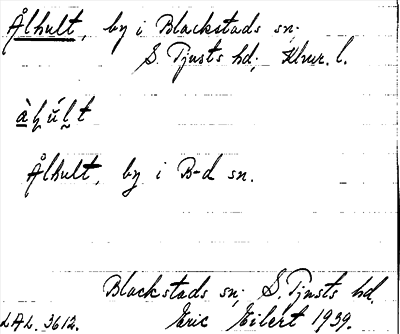 Ålhult, by i Blackstads sn;
S. Tjusts hd; Klmr. l.
Ålhult, by i B-d sn.
Blackstads sn; S. Tjusts hd.
LAL. 3612. Eric Eilert 1939.